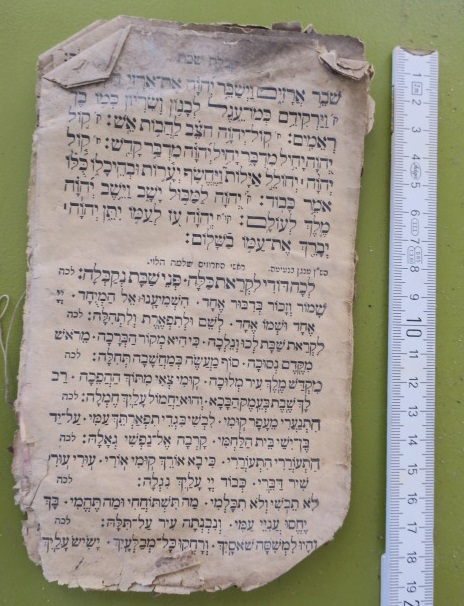 שבת
שבר ארזים וישבר יהוה את־ארזי
וירקידם כמו־עגל לבנון ושריון כמו בן
ראמים: קול־יהוה חצב להבות אש: קול
יהוה יחיל מדבר יחיל יהוה מדבר קדש: קול
יהוה יחולל אילות ויחשף יערות ובהיכלו כלו
אמר כבוד: יהוה למבול ישב וישב יהוה
מלך לעולם: יהוה עז לעמו יתן יהוה
יברך את־עמו בשלום:
ראשי החרוזים שלמה הלוי.
לכה דודי לקראת כלה. פני שבת נקבלה: לכה
שמור וזכור בדבור אחד. השמיענו אל המיוחד. יי
אחד ושמו אחד. לשם ולתפארת ולתהלה: לכה
לקראת שבת לכו ונלכה. כי היא מקור הברכה. מראש
מקדם נסוכה. סוף מעשה במחשבה תחלה: לכה
מקדש מלך עיר מלוכה. קומי צאי מתוך ההפכה. רב
לך שבת בעמק הבכא. והוא יחמול עליך חמלה: לכה
התנערי מעפר קומי. לבשי בגדי תפארתך עמי. על־יד
בן־ישי בית הלחמי. קרבה אל־נפשי גאלה: לכה
התעוררי התעוררי. כי בא אורך קומי אורי. עורי עורי
שיר דברי. כבוד יי עליך נגלה: לכה
לא תבשי ולא תכלמי. מה תשתוחחי ומה תהמי. בך
יחסו עניי עמי. ונבנתה עיר על־תלה: לכה
והיו למשסה שאסיך. ורחקו כל־מבלעיך. ישיש עליך
1
2
3
4
5
6
7
8
9
10
11
12
13
14
15
16
17
18
19